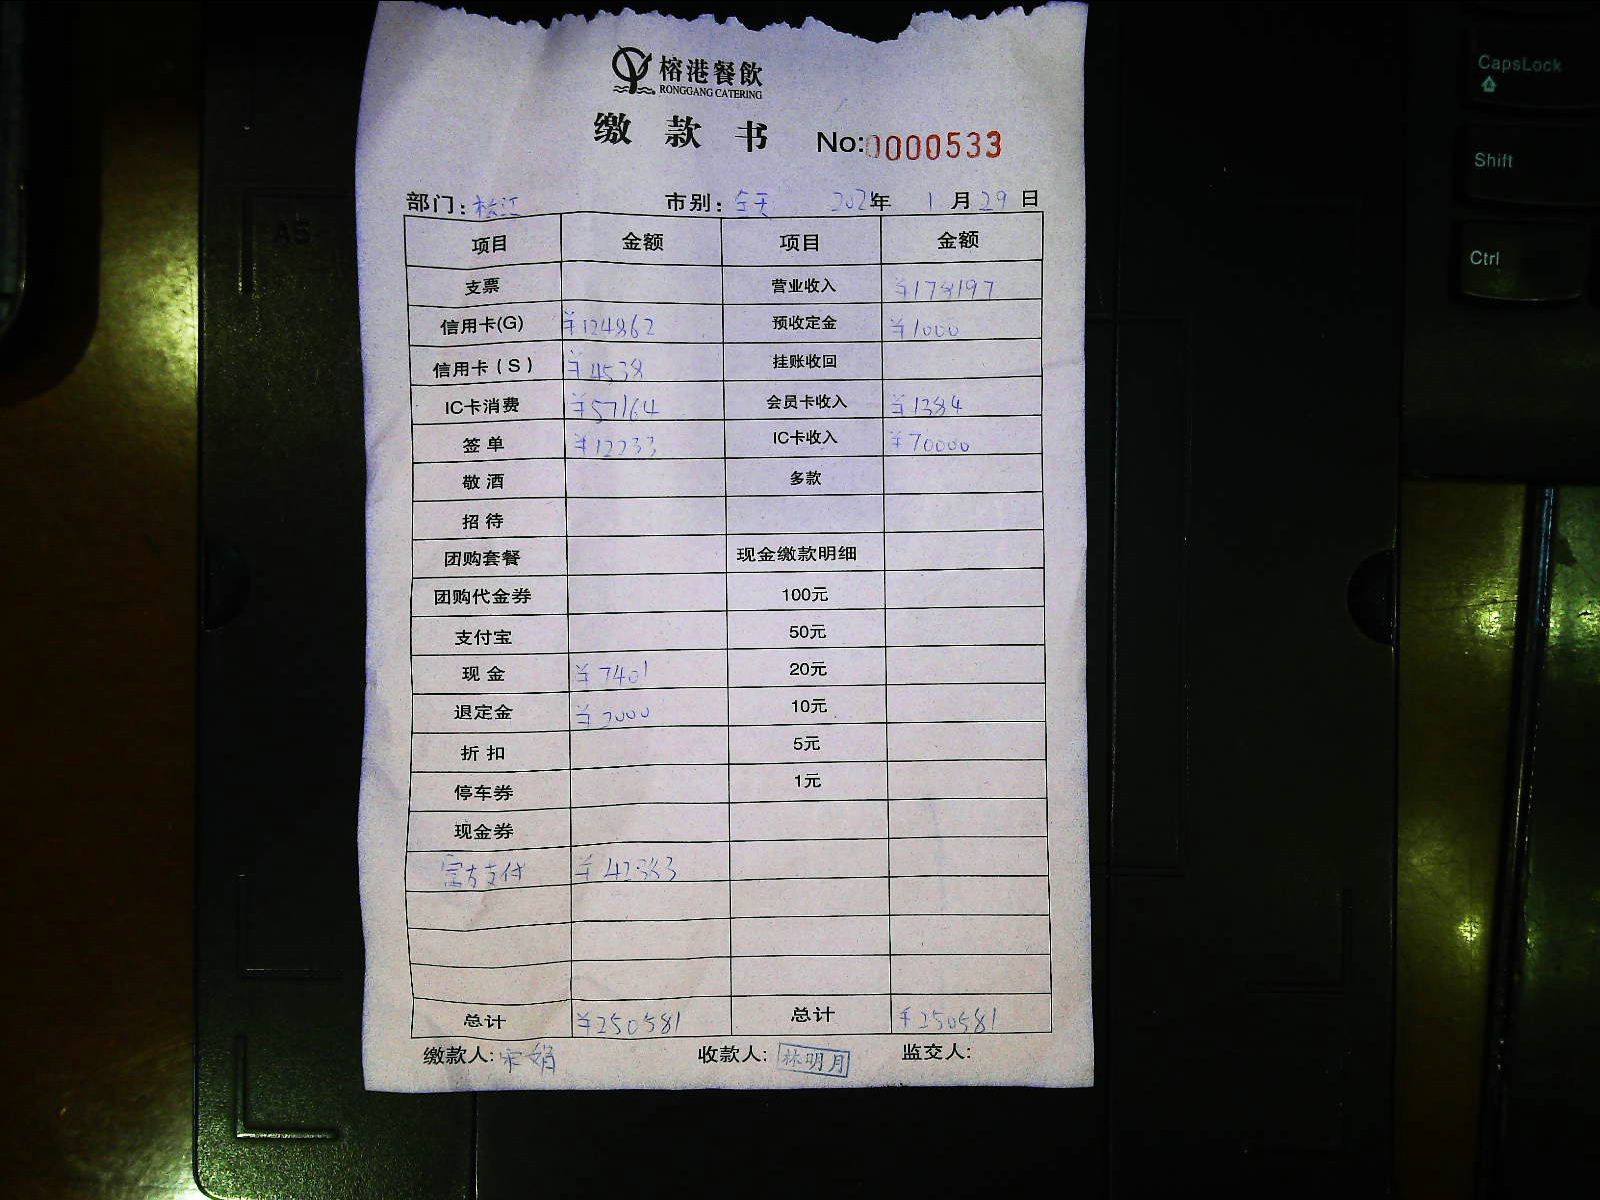 榕港餐飲
RONGGANG CATERING
缴款书 No:0000533
部门: 松江 市别: 全天 2021年 1月29日
项目 金额 项目 金额
支票 营业收入 ¥178197
信用卡(G) ¥124862 预收定金 ¥1000
信用卡(S) ¥4538 挂账收回
IC卡消费 ¥57164 会员卡收入 ¥1384
签单 ¥12233 IC卡收入 ¥70000
敬酒 多款
招待
团购套餐 现金缴款明细
团购代金券 100元
支付宝 50元
现金 ¥7401 20元
退定金 ¥2000 10元
折扣 5元
停车券 1元
现金券
官方支付 ¥42383
总计 ¥250581 总计 ¥250581
缴款人: 宋娟 收款人: 林明月 监交人:
CapsLock
Shift
Ctrl
A5